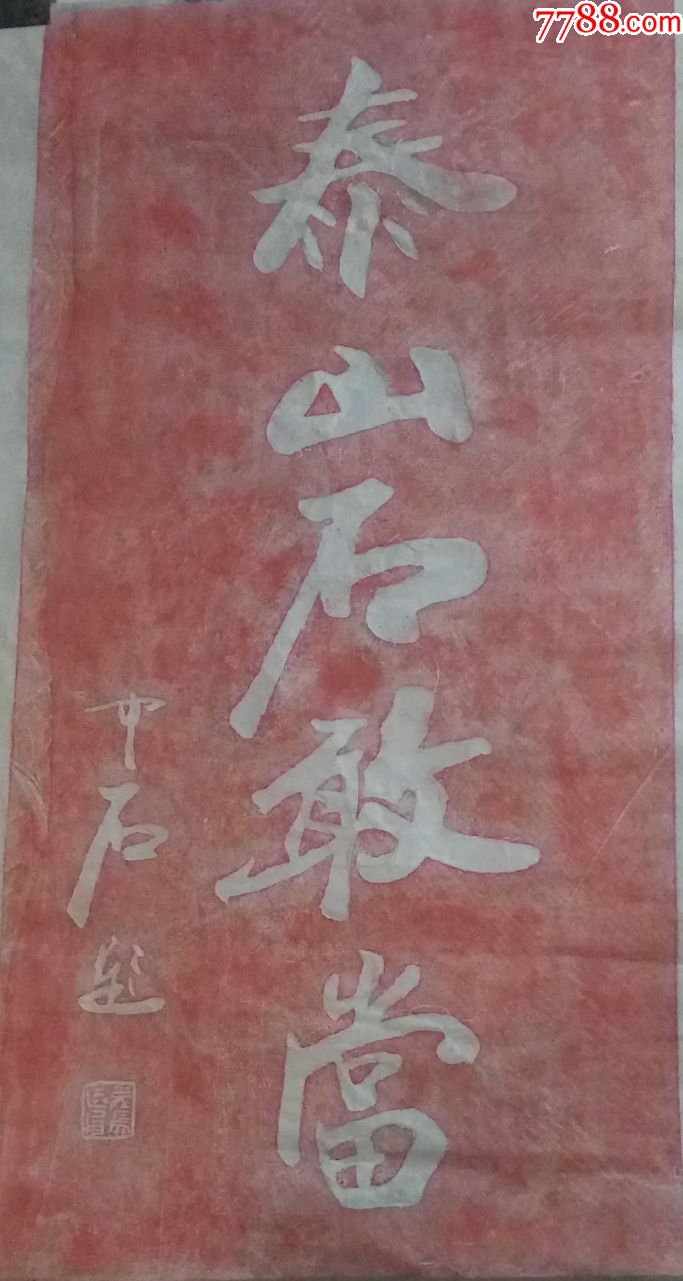 7788.com
泰山石敢當
中石題